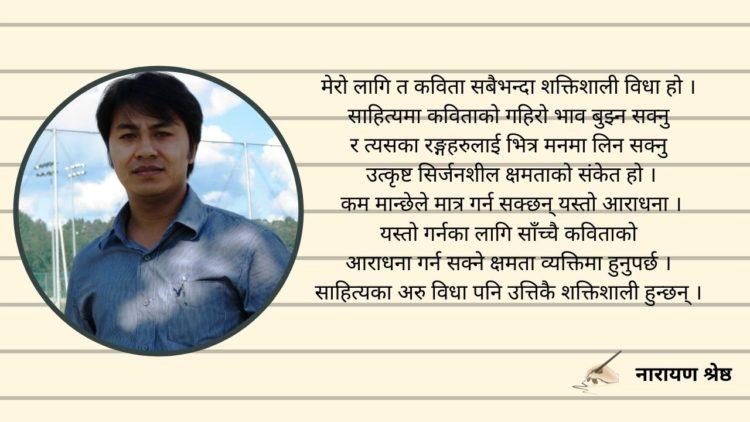 मेरो लागि त कविता सबैभन्दा शक्तिशाली विधा हो ।
साहित्यमा कविताको गहिरो भाव बुझ्न सक्नु
र त्यसका रङ्गहरुलाई भित्र मनमा लिन सक्नु
उत्कृष्ट सिर्जनशील क्षमताको संकेत हो ।
कम मान्छेले मात्र गर्न सक्छन् यस्तो आराधना ।
यस्तो गर्नका लागि साँच्चै कविताको
आराधना गर्न सक्ने क्षमता व्यक्तिमा हुनुपर्छ ।
साहित्यका अरु विधा पनि उत्तिकै शक्तिशाली हुन्छन् ।
नारायण श्रेष्ठ